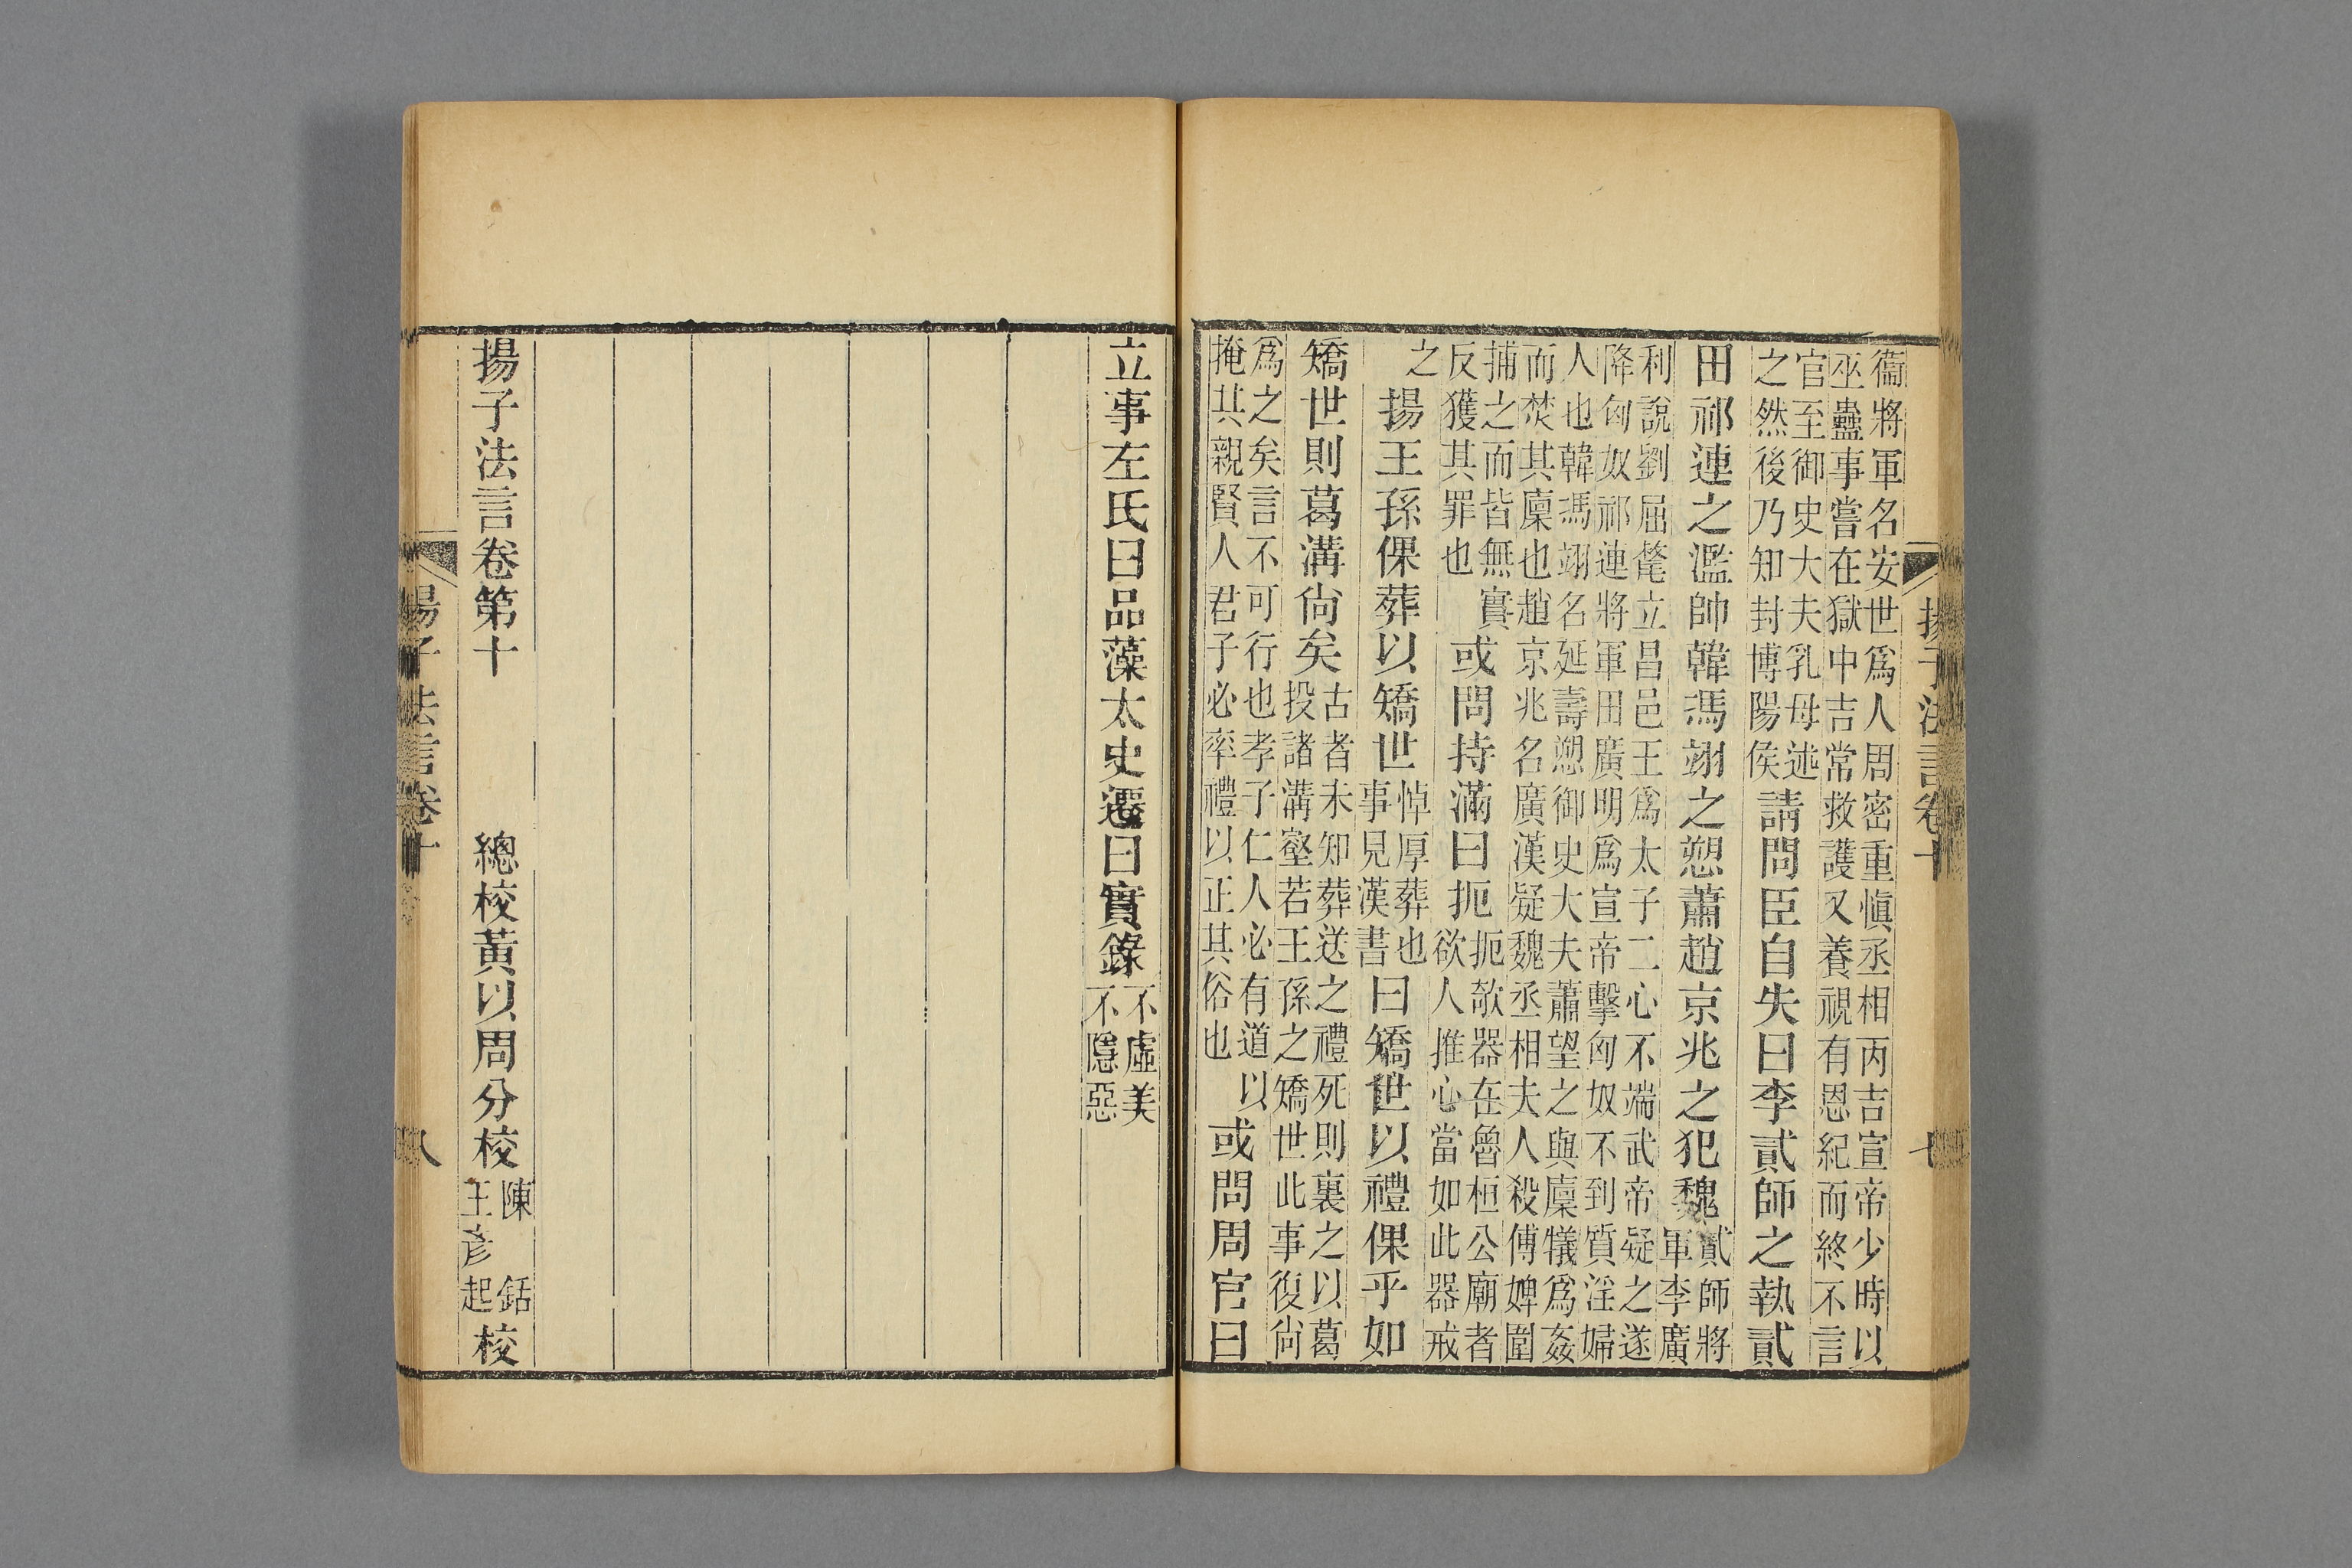 揚子法言卷十　七
衞將軍名安世爲人周密重愼丞相丙吉宣帝少時以
巫蠱事嘗在獄中吉常救護又養視有恩紀而終不言
官至御史大夫乳母述
之然後乃知封博陽侯
請問臣自失曰李貳師之執貳
田祁連之濫帥韓馮翊之愬蕭趙京兆之犯魏
貳師將
軍李廣
利說劉屈氂立昌邑王爲太子二心不端武帝疑之遂
降匈奴祁連將軍田廣明爲宣帝擊匈奴不到質淫婦
人也韓馮翊名延壽愬御史大夫蕭望之與廩犧爲姦
而焚其廩也趙京兆名廣漢疑魏丞相夫人殺傅婢圍
捕之而皆無實
反獲其罪也
或問持滿曰扼
扼欹器在魯桓公廟者
欲人推心當如此器戒
之
揚王孫倮葬以矯世
悼厚葬也
事見漢書
曰矯世以禮倮乎如
矯世則葛溝尙矣
古者未知葬送之禮死則裏之以葛
投諸溝壑若王孫之矯世此事復尙
爲之矣言不可行也孝子仁人必有道以
掩其親賢人君子必率禮以正其俗也
或問周官曰
立事左氏曰品藻太史遷曰實錄
不虛美
不隱惡
揚子法言卷第十　總校黃以周分校
陳銛
王彥起
校
揚子法言卷十　八